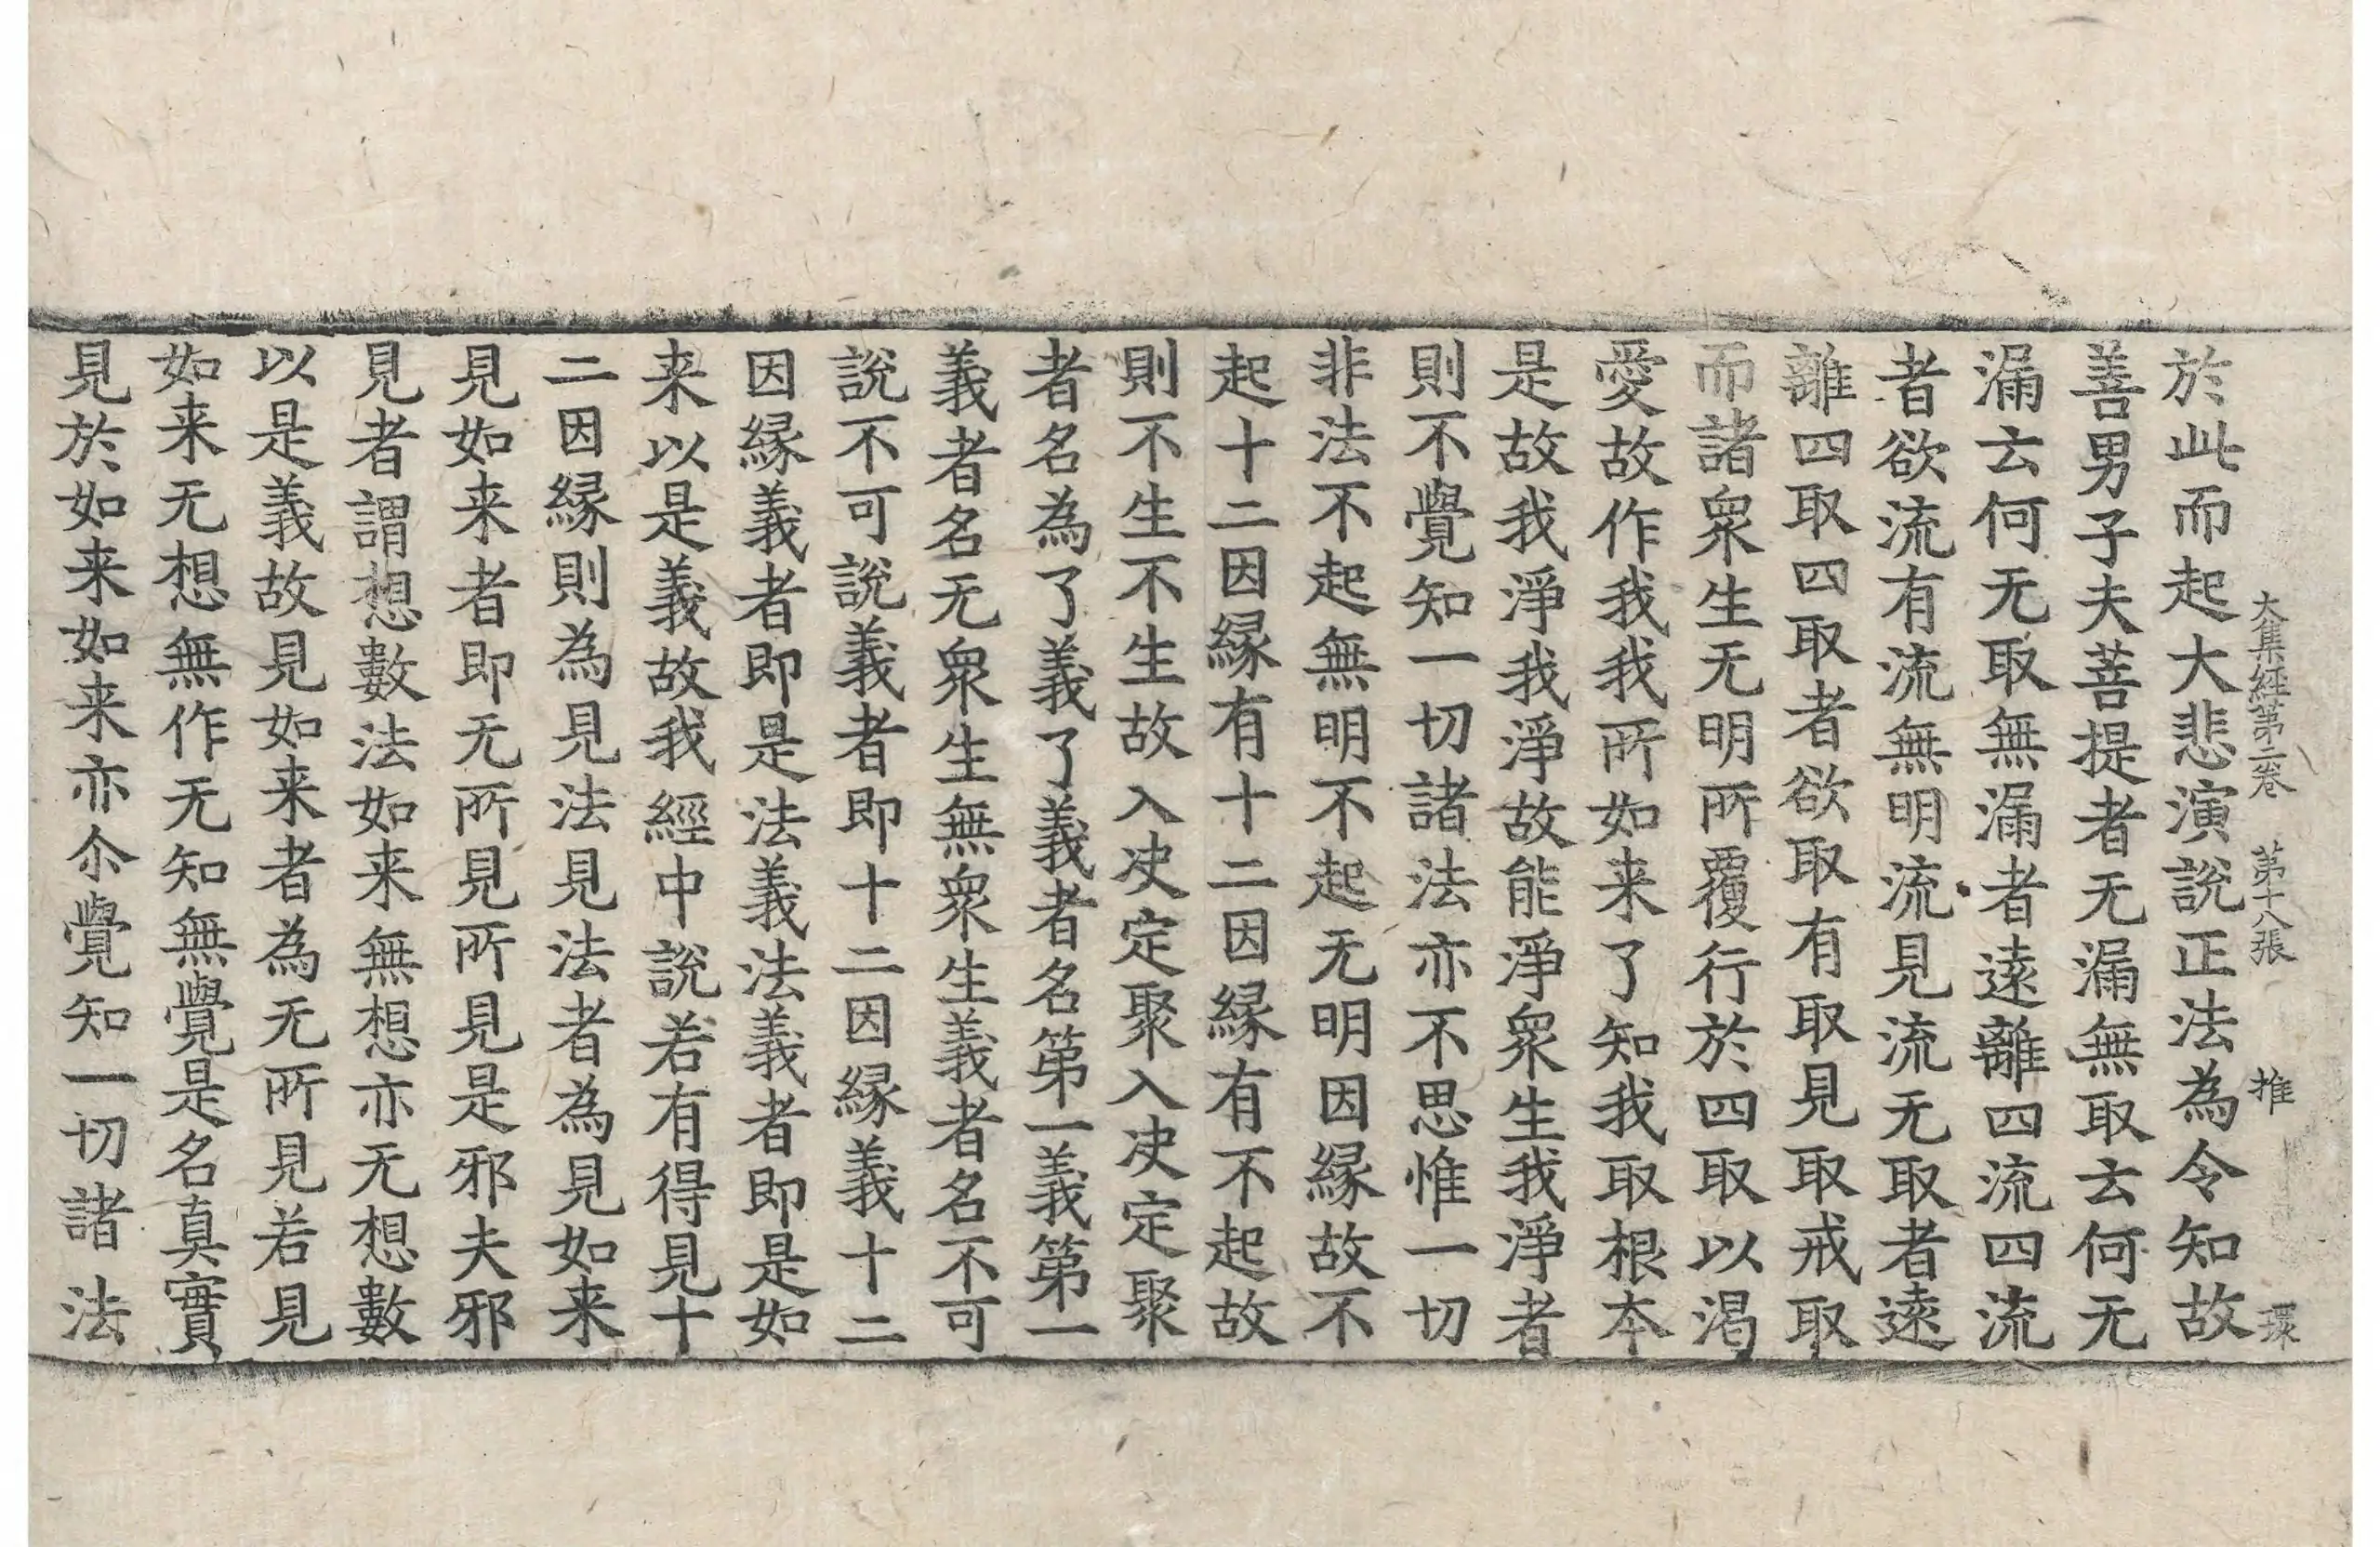 大集經第二卷 第十八張 推 環
於此而起大悲演說正法為令知故
善男子夫菩提者无漏無取云何无
漏云何无取無漏者遠離四流四流
者欲流有流無明流見流无取者遠
離四取四取者欲取有取見取戒取
而諸衆生无明所覆行於四取以渴
愛故作我我所如来了知我取根本
是故我淨我淨故能淨衆生我淨者
則不覺知一切諸法亦不思惟一切
非法不起無明不起无明因縁故不
起十二因縁有十二因縁有不起故
則不生不生故入决定聚入决定聚
者名為了義了義者名第一義第一
義者名无衆生無衆生義者名不可
說不可說義者即十二因縁義十二
因縁義者即是法義法義者即是如
来以是義故我經中說若有得見十
二因縁則為見法見法者為見如来
見如来者即无所見所見是邪夫邪
見者謂想數法如来無想亦无想數
以是義故見如来者為无所見若見
如来无想無作无知無覺是名真實
見於如来如来亦尒覺知一切諸法